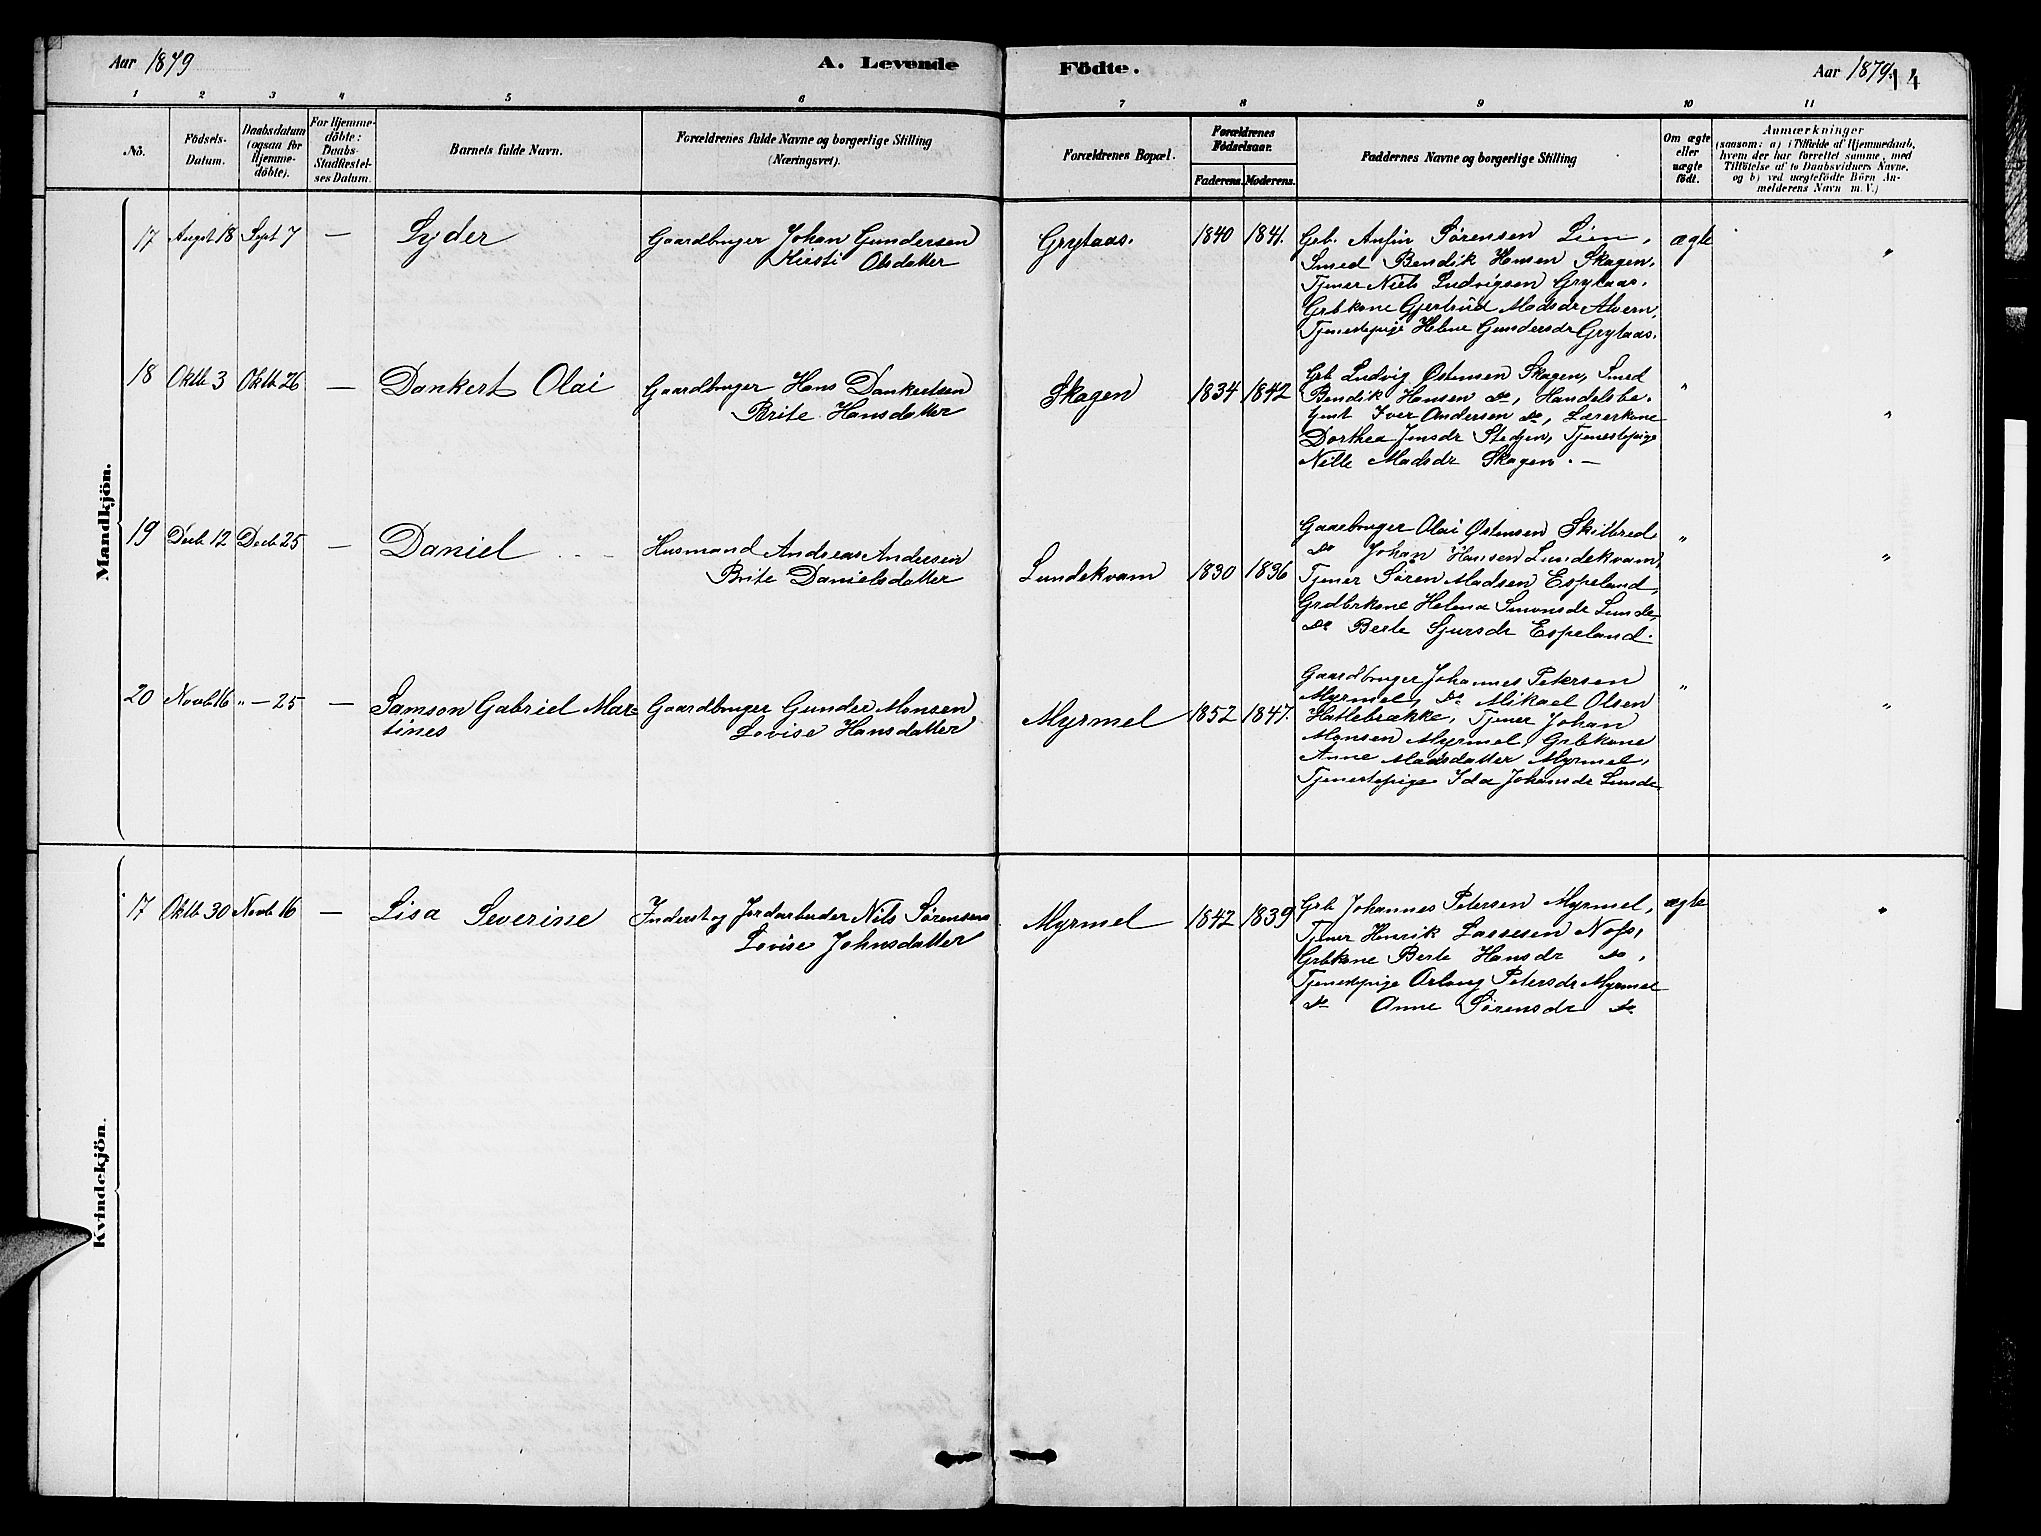 Aar 1879
A. Levende
Födte.
Aar 1879.
14
1 2 3 4 5 6 7 8 9 10 11
No.
Födsels-
Datum.
Daabsdatum
(ogsaa for
Hjemme-
döbte).
For Hjemme-
döbte:
Daabs-
Stadfæstel-
ses Datum.
Barnets fulde Navn.
Forældrenes fulde Navne og borgerlige Stilling
(Næringsvei).
Forældrenes Bopæl.
Forældrenes
Födselsaar.
Faderens. Moderens.
Faddernes Navne og borgerlige Stilling
Om ægte
eller
uægte
födt.
Anmærkninger
(saasom: a) i Tilfælde af Hjemmedaab,
hvem der har forrettet samme, med
Tilföielse af to Daabsvidners Navne,
og b) ved uægtefödte Börn An-
melderens Navn m. V.)
Mandkjön.
17 Augst 18 Sept 7 — Lyder
Gaardbruger Johan Gundersen
Kirsti Olsdatter
Grytaas.
1840 1841.
Grb. Anfin Sørensen Lien,
Smed Bendik Hansen Skagen,
Tjener Niels Ludvigsen Grytaas.
Grbkone Gjertrud Madsdr Alvern,
Tjenestepige Helene Gundersdr Grytaas.
ægte
"
18 Oktb 3 Oktb 26 — Dankert Olai
Gaardbruger Hans Dankertsen
Brite Hansdatter
Skagen
1834 1842
Grb Ludvig Østensen Skagen, Smed
Bendik Hansen do, Handelsbe-
tjent Iver Andersen do, Lærerkone
Dorthea Jensdr Stedjen, Tjenestepige
Nille Madsdr Skagen. —
"
"
19 Decb 12 Decb 25 — Daniel
Husmand Andreas Andersen
Brite Danielsdatter
Lundekvam
1830 1836
Gaarbruger Olai Østensen Skilbred,
do Johan Hansen Lundekvam,
Tjener Søren Madsen Espeland,
Grdbrkone Helena Simonsdr Lunde,
do Berte Sjursdr Espeland.
"
"
20 Novb 16 " — 25 — Samson Gabriel Mar-
tines
Gaardbruger Gunder Monsen
Lovise Hansdatter
Myrmel
1852 1847.
Gaardbruger Johannes Petersen
Myrmel, do Mikael Olsen
Hatlebrække, Tjener Johan
Monsen Myrmel, Grbkone
Anne Madsdatter Myrmel,
Tjenestepige Ida Johansdr Lunde
"
"
Kvindekjön.
17 Oktb 30 Novb 16 — Lisa Severine
Inderst og Jordarbeider Nils Sørensen
Lovise Johnsdatter
Myrmel
1842 1839
Grb Johannes Petersen Myrmel,
Tjener Henrik Lassesen Nofs,
Grbkone Berte Hansdr do,
Tjenestepige Petersdr Myrmel
do Anne Sørensdr do
ægte
"